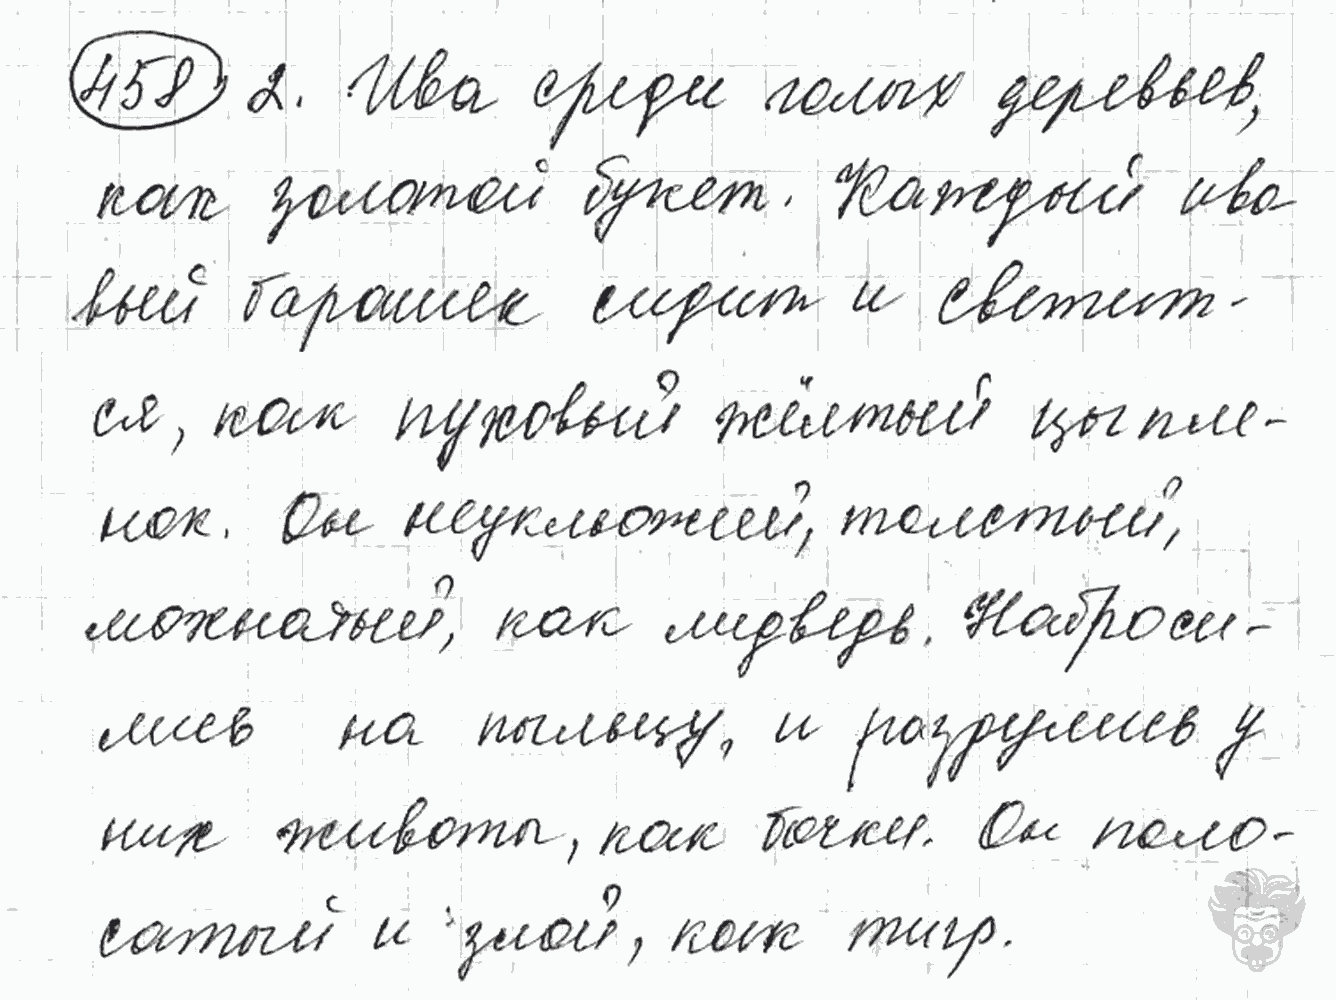 458, 2. Ива среди голых деревьев,
как золотой букет. Каждый иво
вый барашек сидит и светит-
ся, как пуховый жёлтый цыпле-
нок. Он неуклюжий, толстый,
мохнатый, как медведь. Наброси-
лись на пыльцу, и раздулись у
них животы, как бочки. Он поло-
сатый и злой, как тигр.